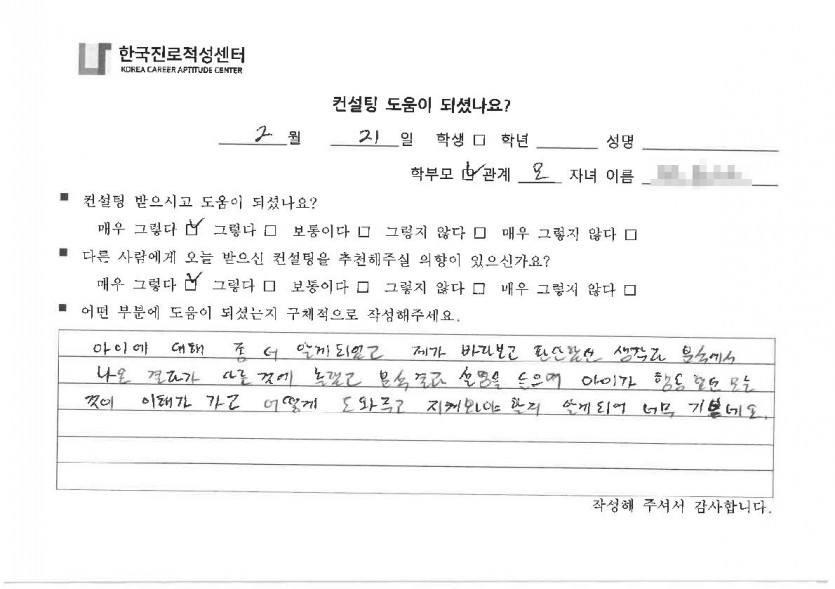 한국진로적성센터
KOREA CAREER APTITUDE CENTER
컨설팅 도움이 되셨나요?
2 월 21 일 학생 □ 학년 성명
학부모 ☑ 관계 모 자녀 이름
■ 컨설팅 받으시고 도움이 되셨나요?
매우 그렇다 ☑ 그렇다 □ 보통이다 □ 그렇지 않다 □ 매우 그렇지 않다 □
■ 다른 사람에게 오늘 받으신 컨설팅을 추천해주실 의향이 있으신가요?
매우 그렇다 ☑ 그렇다 □ 보통이다 □ 그렇지 않다 □ 매우 그렇지 않다 □
■ 어떤 부분에 도움이 되셨는지 구체적으로 작성해주세요.
아이에 대해 좀 더 알게되었고 제가 바라보고 판단했던 생각과 분석에서
나온 결과가 다른 것에 놀랬고 분석결과 설명을 들으며 아이가 행동 모든
것이 이해가 가고 어떻게 도와주고 지켜봐야 할지 알게되어 너무 기쁘네요.
작성해 주셔서 감사합니다.